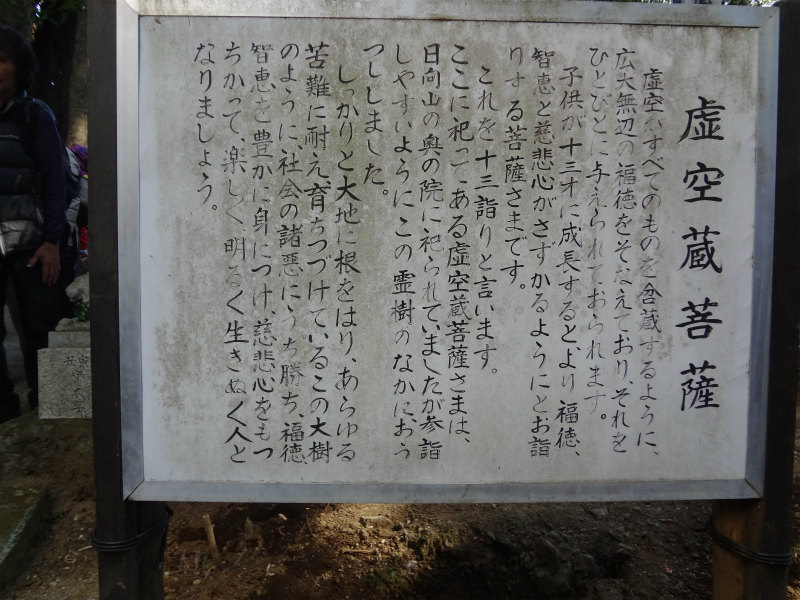 虚空蔵菩薩
虚空がすべてのものを含蔵するように、
広大無辺の福徳をそなえており、それを
ひとびとに与えられておられます。
子供が十三才に成長すると、より福徳、
智恵と慈悲心がさずかるようにとお詣
りする菩薩さまです。
これを十三詣りと言います。
ここに祀ってある虚空蔵菩薩さまは、
日向山の奥の院に祀られていましたが参詣
しやすいようにこの霊樹のなかにおう
つししました。
しっかりと大地に根をはり、あらゆる
苦難に耐え、育ちつづけているこの大樹
のように社会の諸悪にうち勝ち、福徳、
智恵を豊かに身につけ、慈悲心をもつ
ちかって、楽しく、明るく生きぬく人と
なりましょう。